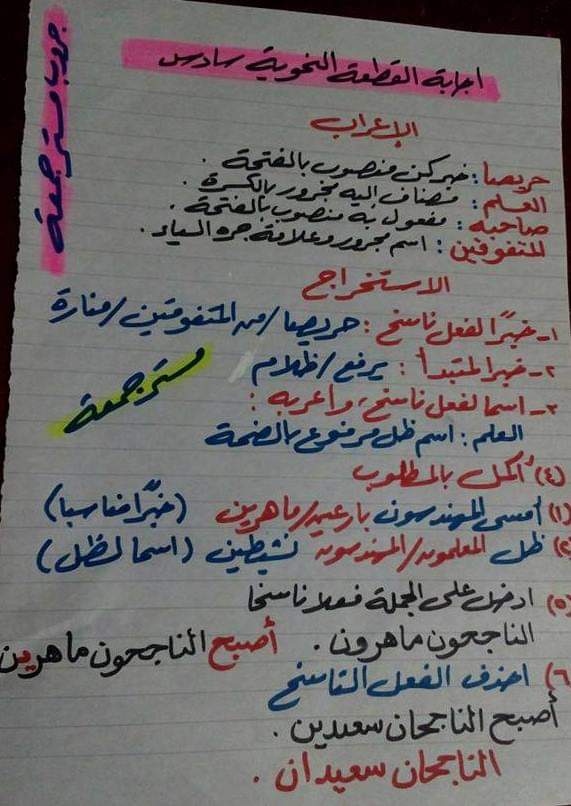 جروب مستر جمعة
اجابة القطعة النحوية سادس
الإعراب
حريصا : خبر كن منصوب بالفتحة .
العلم : مضاف إليه مجرور بالكسرة .
صاحبه : مفعول به منصوب بالفتحة .
المتفوقين : اسم مجرور وعلامة جره الياء .
الاستخراج
١- خبرًا لفعل ناسخ : حريصا / من المتفوقين / منارة
٢- خبرا لمبتدأ : يرفع / ظلام
٣- اسما لفعل ناسخ، واعربه :
العلم : اسم ظل مرفوع بالضمة
مستر جمعة
(٤) أكمل بالمطلوب
(١) أمسى المهندسون بارعين / ماهرين (خبرًا مناسبا)
(٢) ظل المعلمون / المهندسون نشيطين (اسما لظل)
(٥) ادخل على الجملة فعلا ناسخا
الناجحون ماهرون . أصبح الناجحون ماهرين
(٦) احذف الفعل الناسخ
أصبح الناجحان سعيدين .
الناجحان سعيدان .